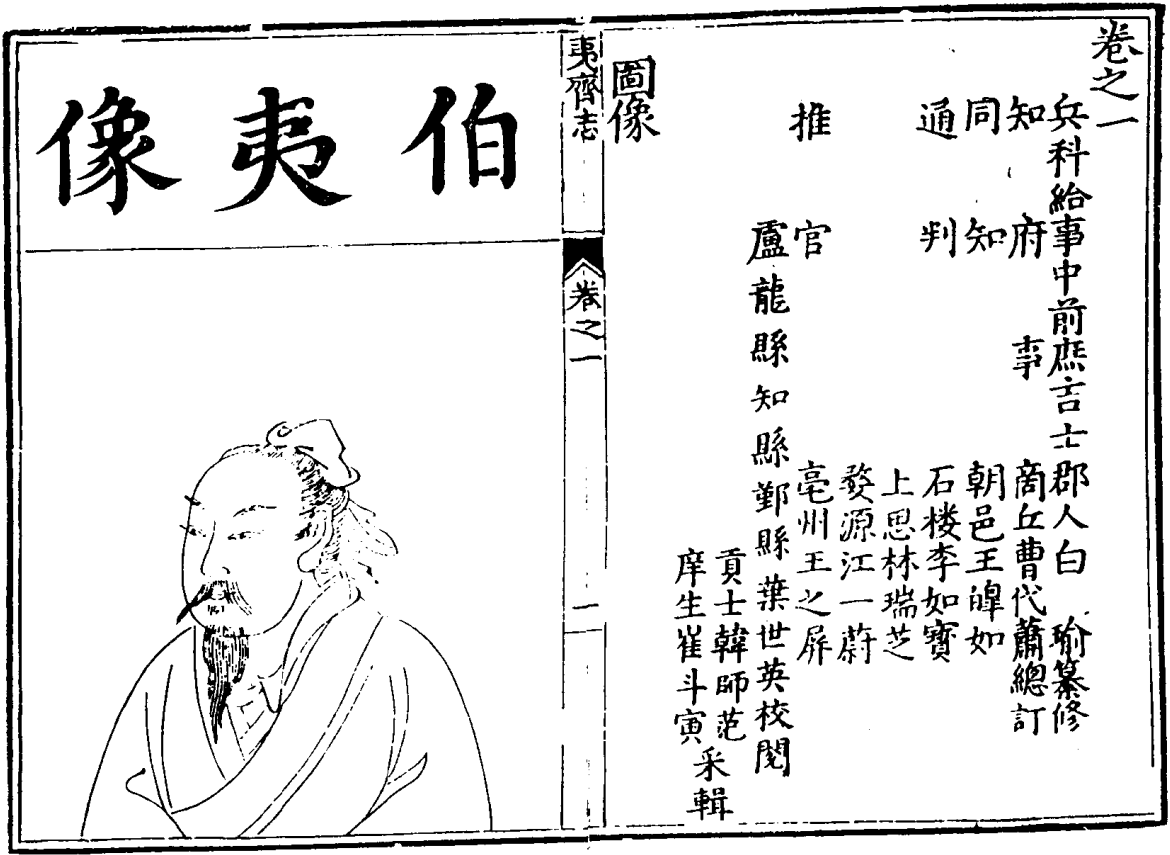 卷之一
兵科給事中前庶吉士郡人白瑜纂修
知府事商丘曹代蕭總訂
同知朝邑王皥如
通判石楼李如寶
上思林瑞芝
婺源江一蔚
推官亳州王之屏
盧龍縣知縣鄞縣葉世英校閱
貢士韓師范
庠生崔斗寅
采輯
圖像
夷齊志
卷之一
一
伯夷像